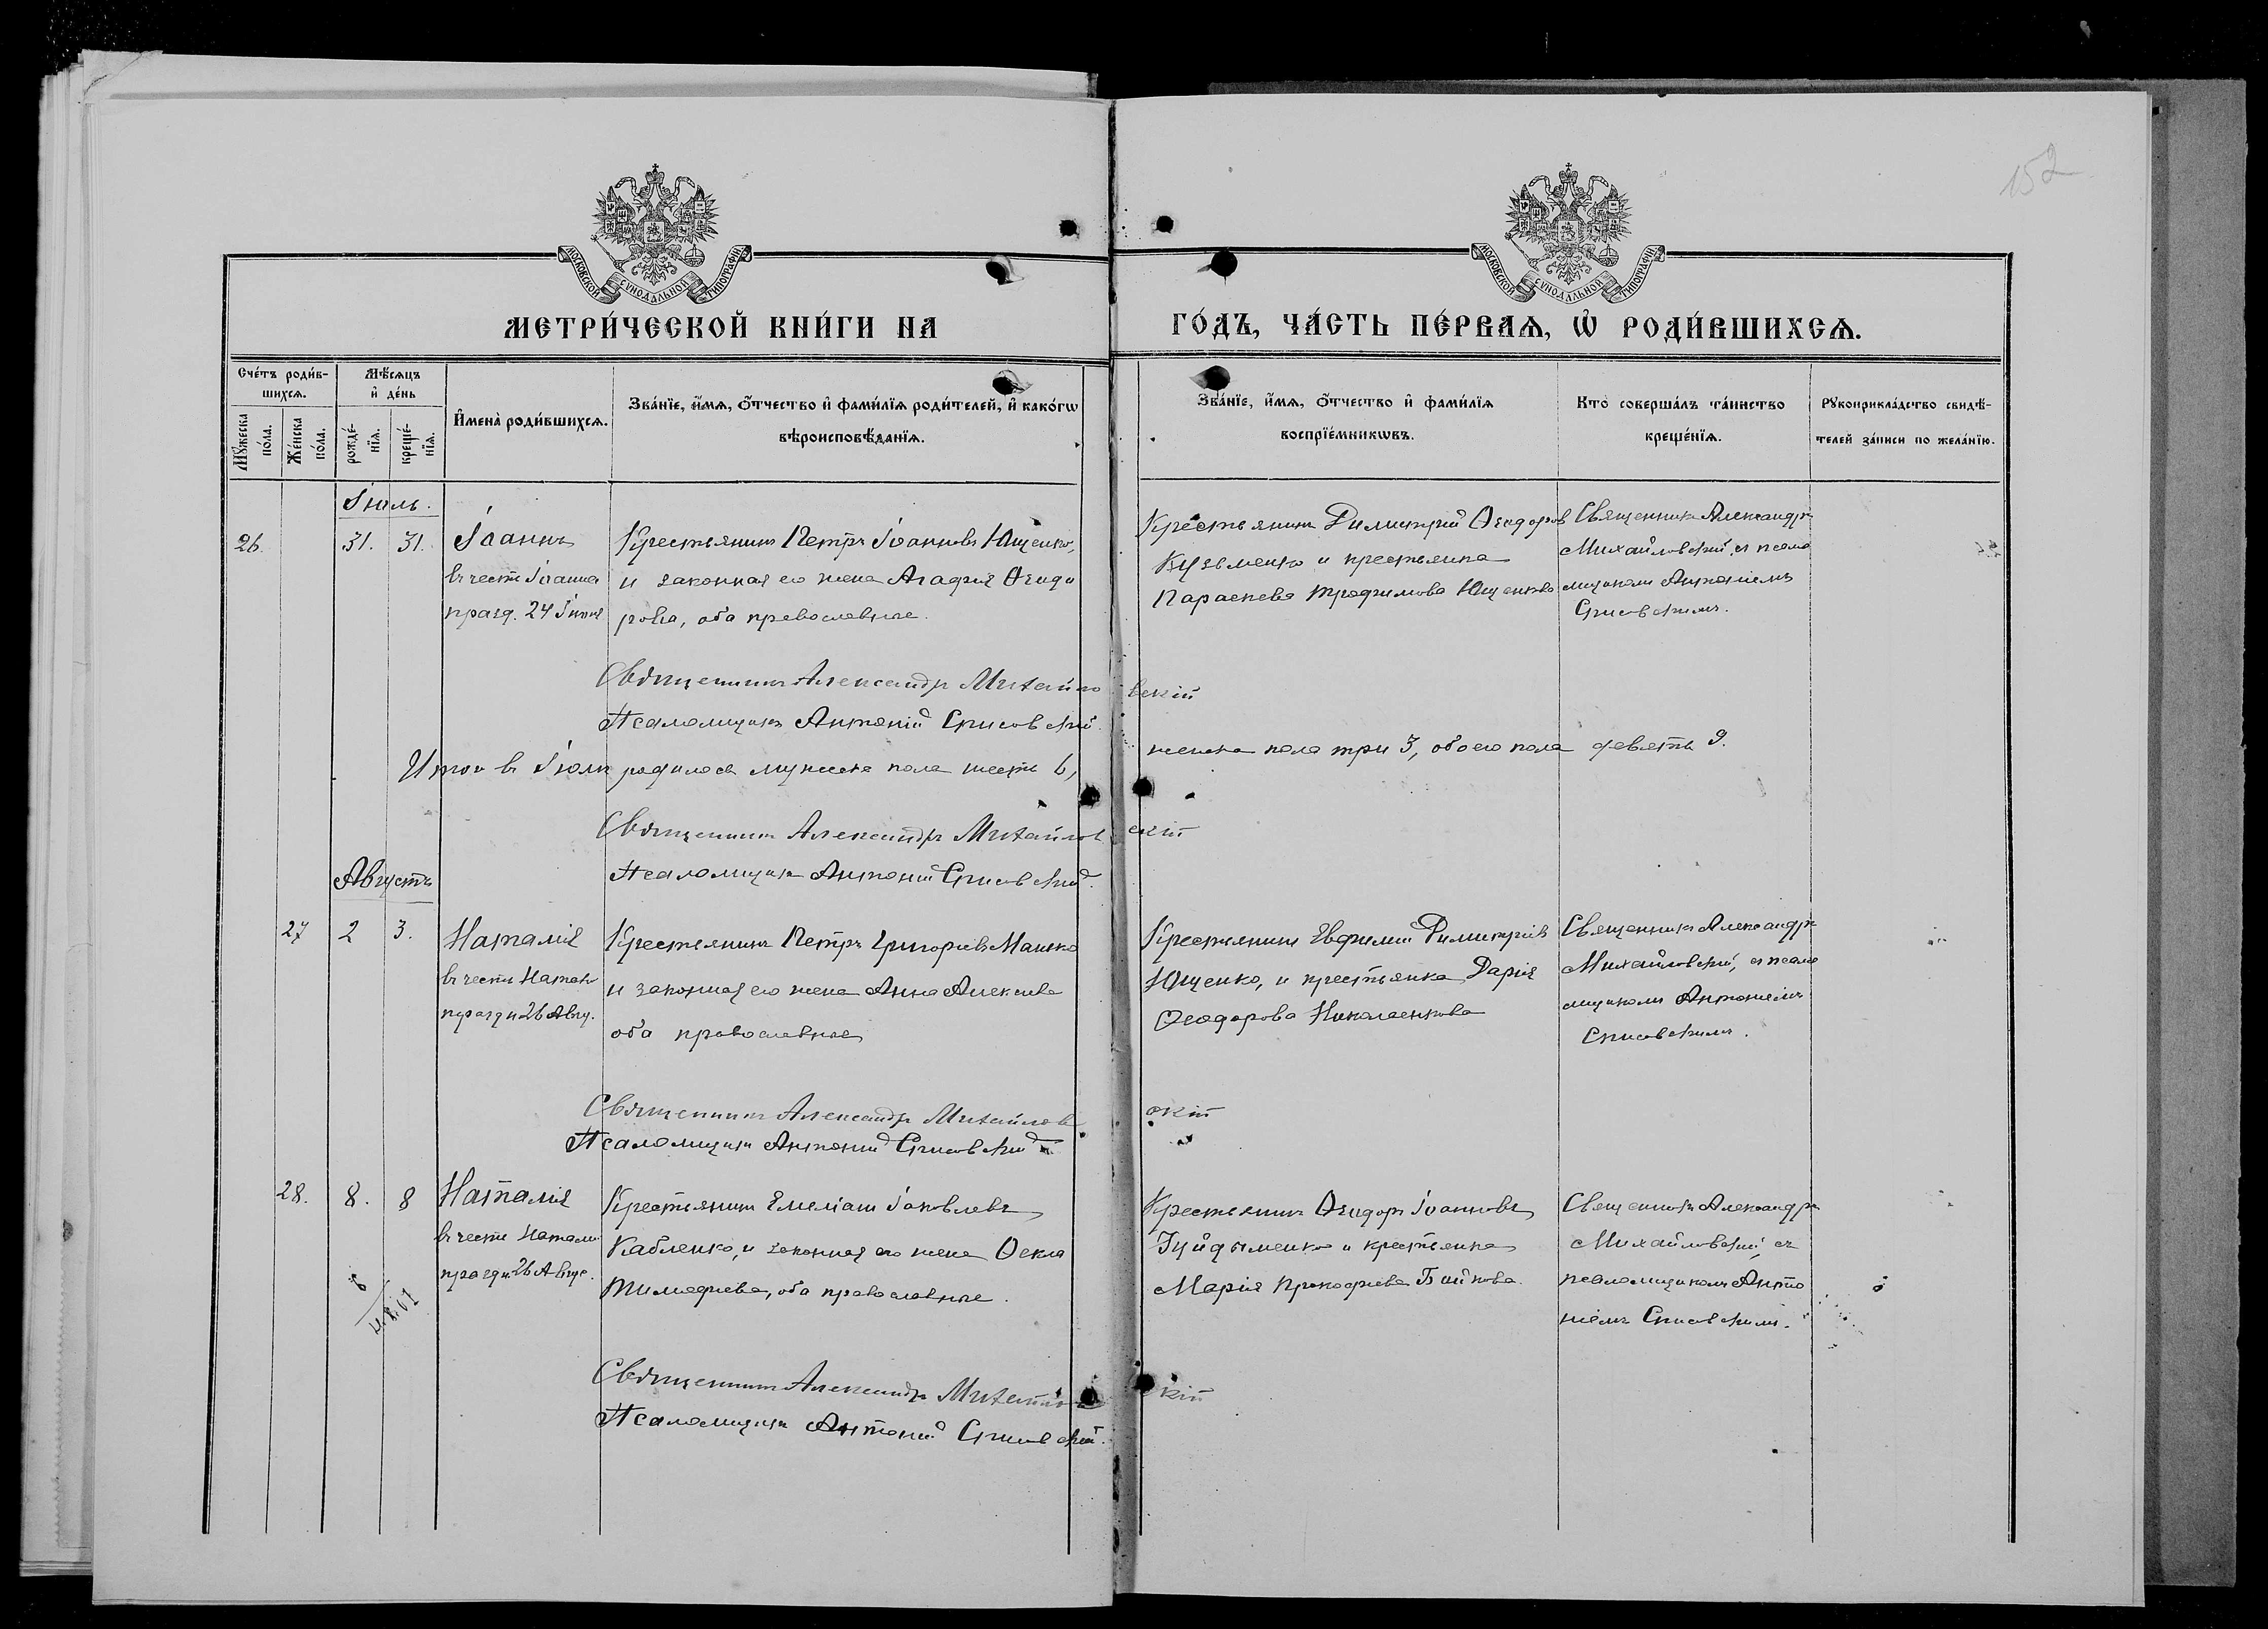 152
МОСКОВСКОЙ СѴНОДАЛЬНОЙ ТИПОГРАФІИ
МОСКОВСКОЙ СѴНОДАЛЬНОЙ ТИПОГРАФІИ
МЕТРИ́ЧЕСКОЙ КНИ́ГИ НА
ГО́ДЪ, ЧА́СТЬ ПЕ́РВАѦ, Ѽ РОДИ́ВШИХСѦ.
Сче́тъ роди́в-
шихсѧ.
Мꙋ́жеска по́ла.
Же́нска по́ла.
Мѣ́сѧцъ
и҆ де́нь
рожде́-
нїѧ.
креще́-
нїѧ.
И҆мена̀ роди́вшихсѧ.
Зва́нїе, и҆́мѧ, ѻ҆́тчество и҆ фами́лїѧ роди́телей, и҆ како́гѡ
вѣроисповѣ́данїѧ.
Зва́нїе, и҆́мѧ, ѻ҆́тчество и҆ фами́лїѧ
воспрїе́мникѡвъ.
Кто̀ соверша́лъ та́инство
креще́нїѧ.
Рꙋкоприкла́дство свидѣ́-
телей за́писи по жела́нїю.
Іюль.
26. 31. 31.
Іоаннъ
въ честь Іоанна
празд. 24 Іюня
Крестьянинъ Петръ Іоанновъ Ющенко,
и законная его жена Агафія Ѳеодо
рова, оба православные.
Крестьянинъ Димитрій Ѳеодоров
Кузьменко и крестьянка
Параскева Трофимова Ющенкова
Священникъ Александръ
Михайловскій, съ псало
мщикомъ Антоніемъ
Священникъ Александръ Михайловскій
Псаломщикъ Антоній
Итого въ Іюлѣ родилось мужеска пола шесть 6, женска пола три 3, обоего пола девять 9.
Священникъ Александръ Михайловскій
Псаломщикъ Антоній
Августъ
27 2 3.
Наталія
въ честь Натал
праздн 26 Авгу.
Крестьянинъ Петръ Григорьевъ Машко
и законная его жена Анна Алексѣева
оба православные
Крестьянинъ Евфимій Димитріевъ
Ющенко, и крестьянка Дарія
Ѳеодорова Николаенкова
Священникъ Александръ
Михайловскій, съ псало
мщикомъ Антоніемъ
Священникъ Александръ Михайловскій
Псаломщикъ Антоній
28. 8. 8
Наталія
въ честь Натали
праздн 26 Авгус.
Крестьянинъ Емеліанъ Іаковлевъ
Кабленко, и законная его жена Ѳекла
Тимофіева, оба православные.
Крестьянинъ Ѳеодоръ Іоанновъ
Гуйдыменко и крестьянка
Марія Прокофіева Бойкова.
Священникъ Александръ
Михайловскій, съ
псаломщикомъ Анто
ніемъ
Священникъ Александръ Михайловскій
Псаломщикъ Антоній